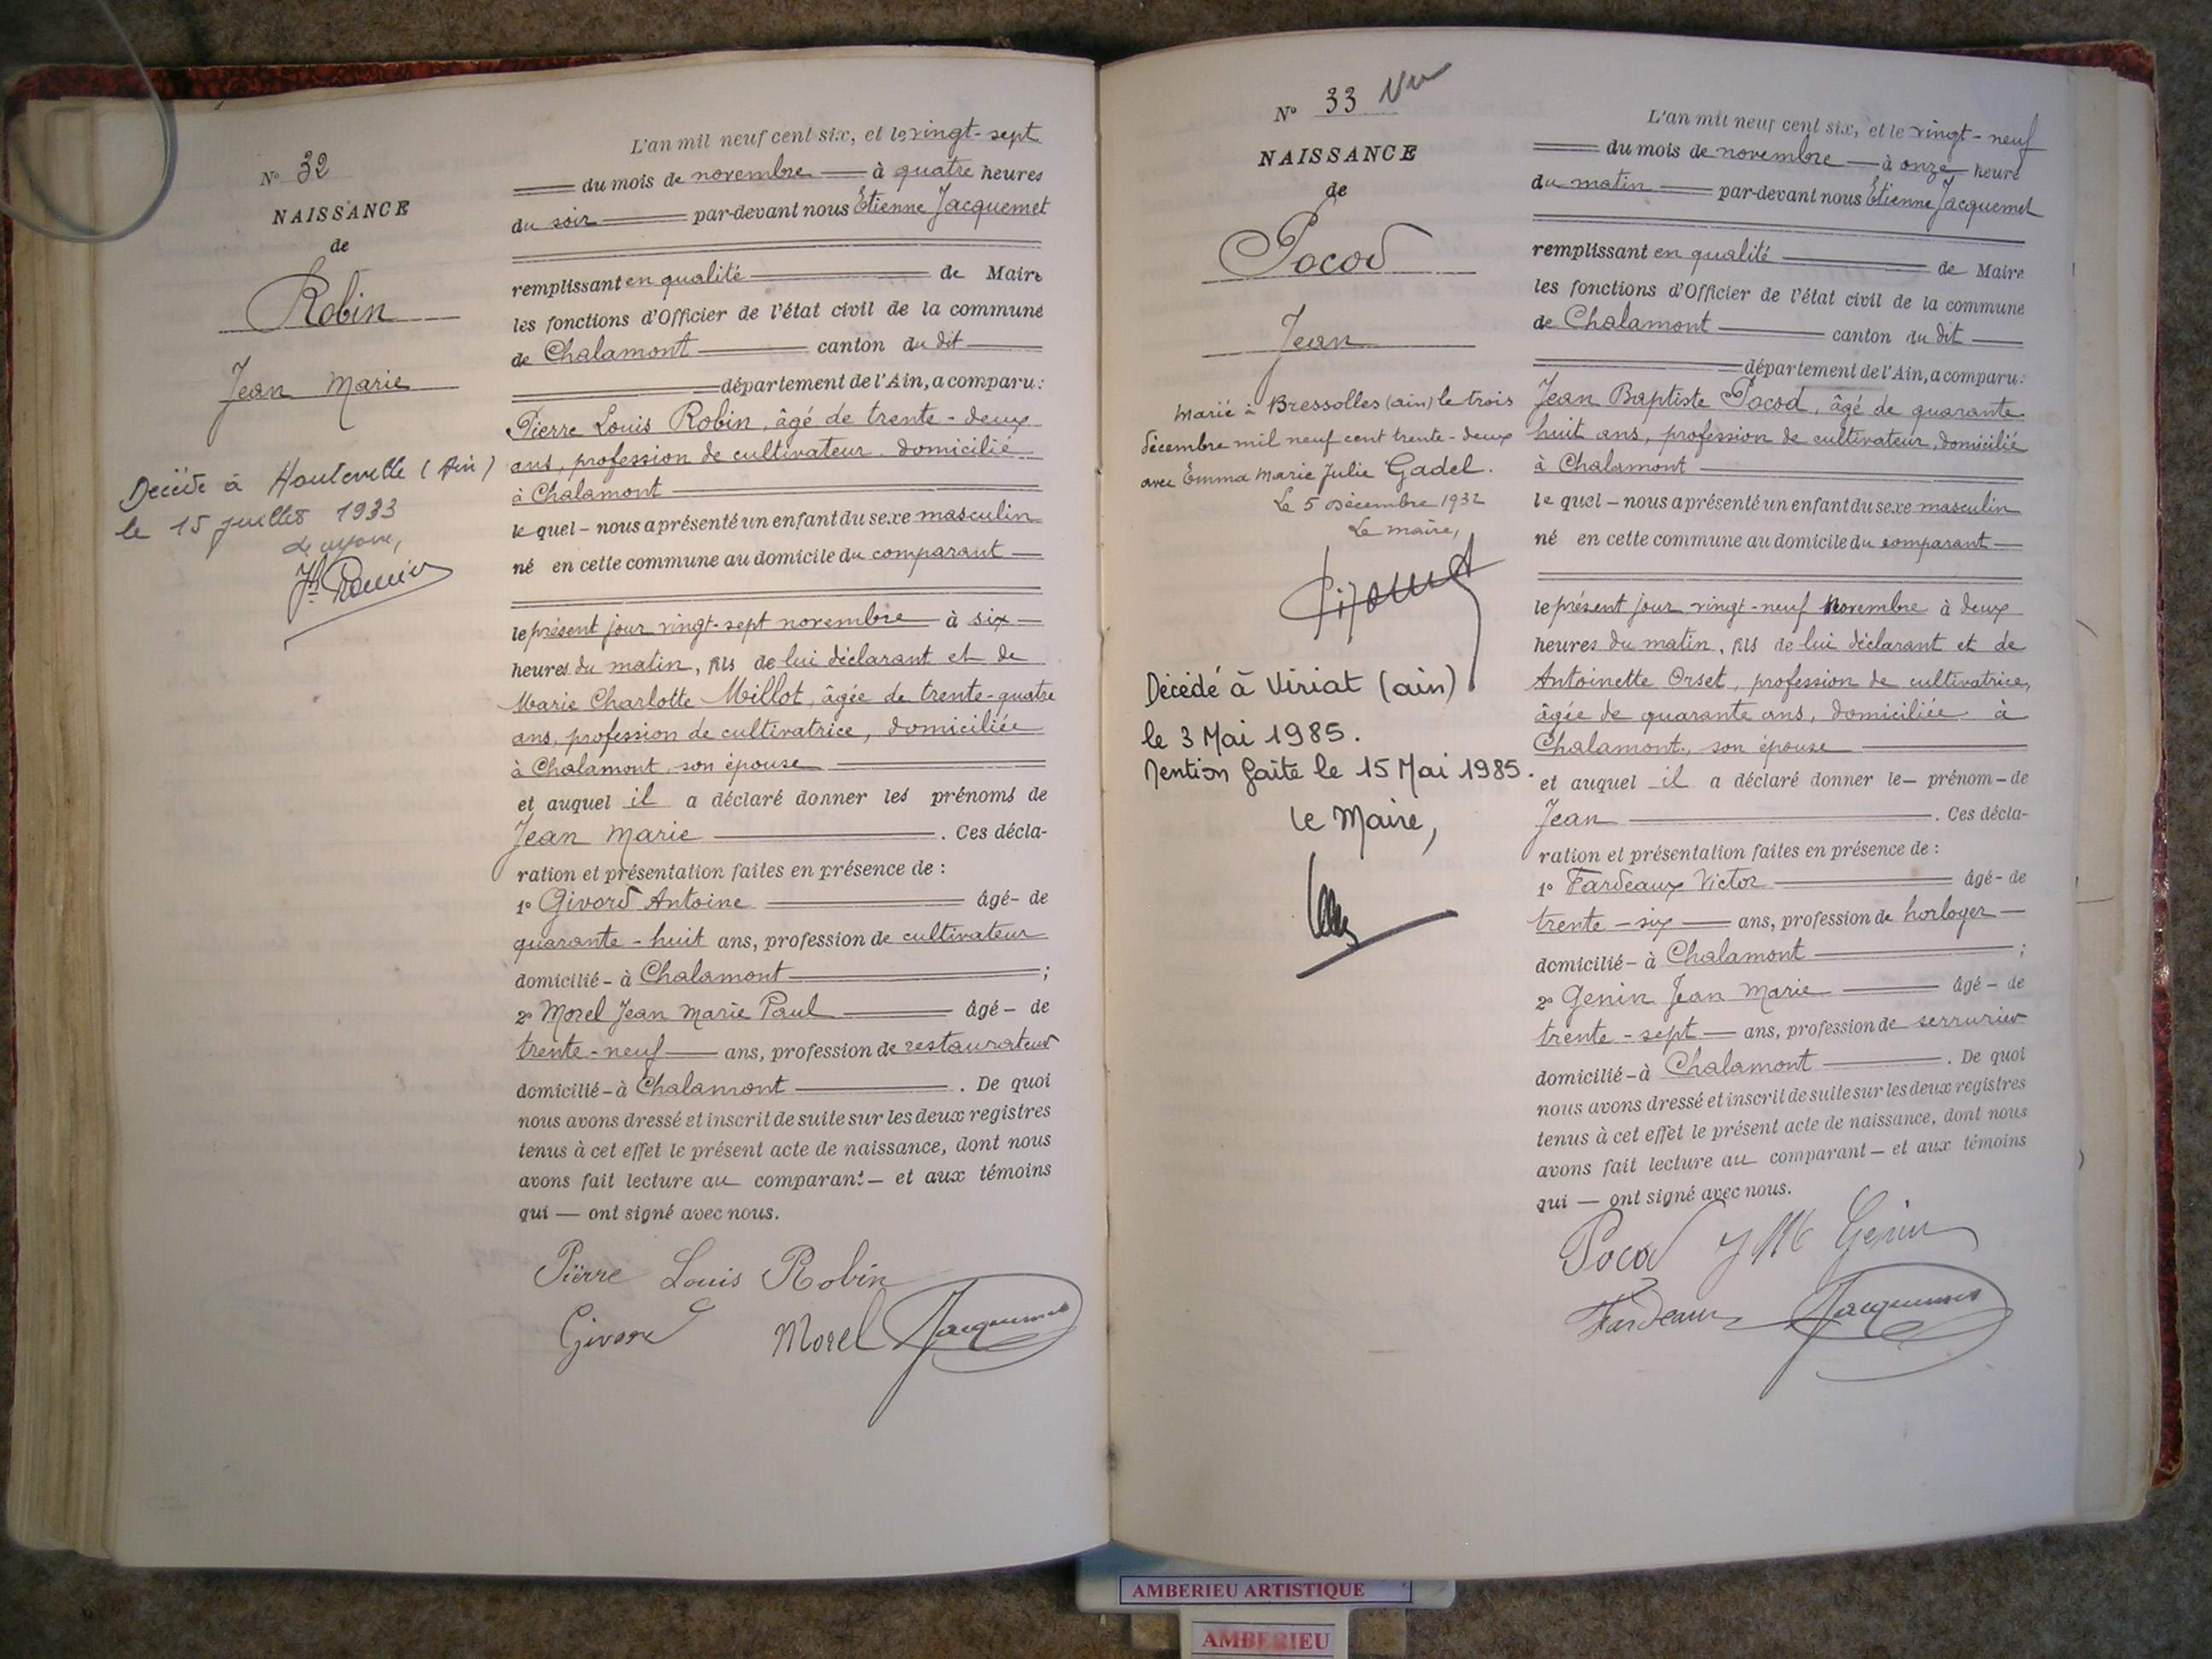 N° 32
NAISSANCE
de
Robin
Jean Marie
Décédé à Hauteville (Ain)
le 15 juillet 1933
Le maire,
L'an mil neuf cent six, et le vingt-sept
du mois de novembre à quatre heures
du soir par-devant nous Etienne Jacquemet
remplissant en qualité de Maire
les fonctions d'Officier de l'état civil de la commune
de Chalamont canton du dit
département de l'Ain, a comparu:
Pierre Louis Robin, âgé de trente-deux
ans, profession de cultivateur domicilié
à Chalamont
lequel - nous a présenté un enfant du sexe masculin
né en cette commune au domicile du comparant
le présent jour vingt-sept novembre à six
heures du matin, fils de lui déclarant et de
Marie Charlotte Millot, âgée de trente-quatre
ans, profession de cultivatrice, domiciliée
à Chalamont, son épouse
et auquel il a déclaré donner les prénoms de
Jean Marie. Ces décla-
ration et présentation faites en présence de :
1° Givord Antoine âgé- de
quarante-huit ans, profession de cultivateur
domicilié- à Chalamont ;
2° Morel Jean Marie Paul âgé- de
trente-neuf ans, profession de restaurateur
domicilié-à Chalamont. De quoi
nous avons dressé et inscrit de suite sur les deux registres
tenus à cet effet le présent acte de naissance, dont nous
avons fait lecture au comparant - et aux témoins
qui - ont signé avec nous.
Pierre Louis Robin
Givord Morel Jacquemet
N° 33 Vu
NAISSANCE
de
Pocod
Jean
Marié à Bressolles (ain) le trois
décembre mil neuf cent trente-deux
avec Emma Marie Julie Gadel.
Le 5 Décembre 1932
Le maire,
Décédé à Viriat (ain)
le 3 Mai 1985.
Mention faite le 15 Mai 1985.
Le Maire,
L'an mil neuf cent six, et le vingt-neuf
du mois de novembre à onze heure
du matin par-devant nous Etienne Jacquemet
remplissant en qualité de Maire
les fonctions d'Officier de l'état civil de la commune
de Chalamont canton du dit
département de l'Ain, a comparu:
Jean Baptiste Pocod, âgé de quarante
huit ans, profession de cultivateur, domicilié
à Chalamont
lequel - nous a présenté un enfant du sexe masculin
né en cette commune au domicile du comparant
le présent jour vingt-neuf novembre à deux
heures du matin, fils de lui déclarant et de
Antoinette Orset, profession de cultivatrice,
âgée de quarante ans, domiciliée à
Chalamont, son épouse
et auquel il a déclaré donner le - prénom - de
Jean. Ces décla-
ration et présentation faites en présence de :
1° Fardeaux Victor âgé- de
trente-six ans, profession de horloger
domicilié- à Chalamont ;
2° Genin Jean Marie âgé - de
trente-sept ans, profession de serrurier
domicilié-à Chalamont. De quoi
nous avons dressé et inscrit de suite sur les deux registres
tenus à cet effet le présent acte de naissance, dont nous
avons fait lecture au comparant - et aux témoins
qui - ont signé avec nous.
Pocod J M Genin
Fardeaux Jacquemet
AMBERIEU ARTISTIQUE
AMBERIEU